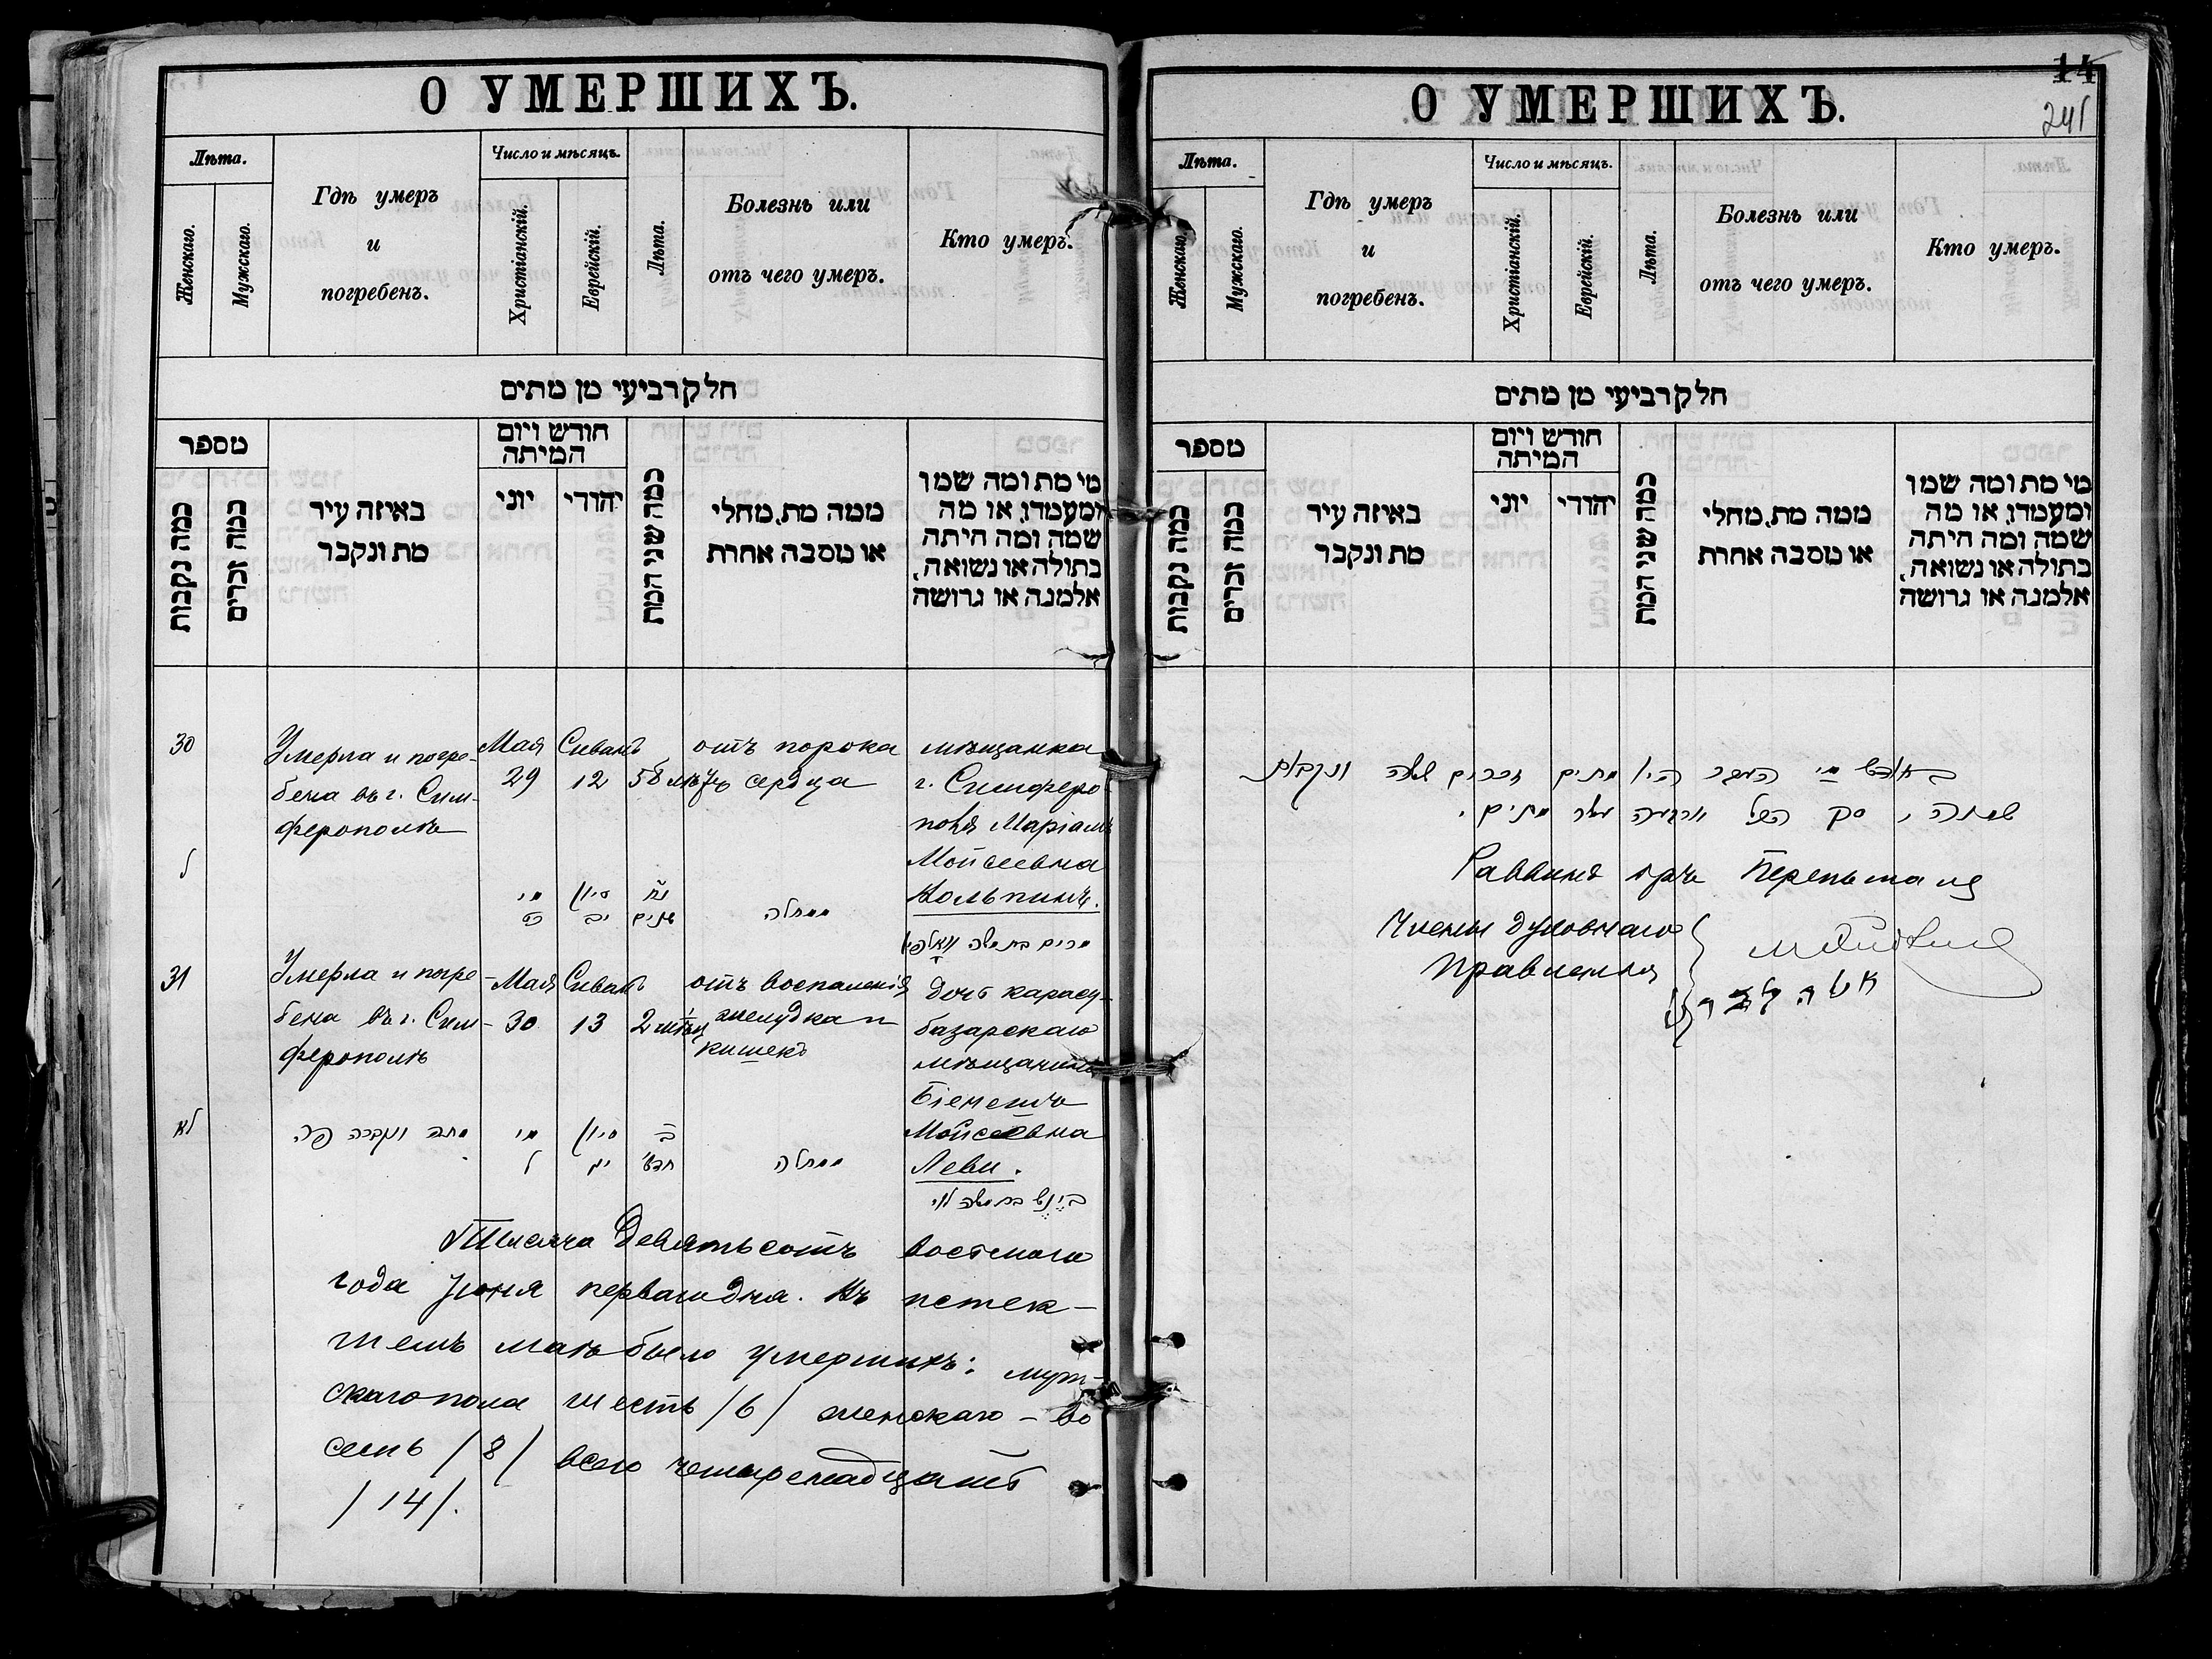 О УМЕРШИХЪ.
Лѣта.
Женскаго.
Мужскаго.
Гдѣ умеръ
и
погребенъ.
Число и мѣсяцъ.
Христіанскій.
Еврейскій.
Лѣта.
Болезнь или
отъ чего умеръ.
Кто умеръ.
חלק רביעי מן מתים
מספר
כמה נקבות
כמה זכרים
באיזה עיר
מת ונקבר
חודש ויום
המיתה
יוני
יהודי
כמה שני המת
ממה מת, מחלי
או מסבה אחרת
מי מת ומה שמו
ומעמדו, או מה
שמה ומה היתה
בתולה או נשואה,
אלמנה או גרושה
30
Умерла и погре-
бена въ г. Сим-
ферополѣ
Мая
29
Сиванъ
12
58 лѣтъ
отъ порока
сердца
мѣщанка
г. Симферо-
поля Маріамъ
Мойсеевна
Вольпинъ.
ל
מיי
כט
סיון
יב
נח
שנים
ממחלה
מרים בת משה וואלפין
31
Умерла и погре-
бена въ г. Сим-
ферополѣ
Мая
30
Сиванъ
13
2 мѣсяц
отъ воспаленія
желудка и
кишекъ
дочь карасу-
базарскаго
мѣщанина
Біенешъ
Мойсеевна
Леви.
לא
מתה ונקברה פה
מיי
ל
סיון
יג
ב
חדש'
ממחלה
בת משה לוי
Тысяча девятьсотъ восьмого
года Іюня перваго дня. Въ истек-
шемъ маѣ было умершихъ: муж-
скаго пола шесть /6/ женскаго - во
семь /8/ всего четырнадцать
/14/.
14
241
О УМЕРШИХЪ.
Лѣта.
Женскаго.
Мужскаго.
Гдѣ умеръ
и
погребенъ.
Число и мѣсяцъ.
Христіанскій.
Еврейскій.
Лѣта.
Болезнь или
отъ чего умеръ.
Кто умеръ.
חלק רביעי מן מתים
מספר
כמה נקבות
כמה זכרים
באיזה עיר
מת ונקבר
חודש ויום
המיתה
יוני
יהודי
כמה שני המת
ממה מת, מחלי
או מסבה אחרת
מי מת ומה שמו
ומעמדו, או מה
שמה ומה היתה
בתולה או נשואה,
אלמנה או גרושה
בחודש מיי העבר היו מתים זכרים ששה ונקבות
שמונה, סך הכל ארבעה עשר מתים.
Раввинъ врчъ Перепьманъ
Члены духовнаго
Правленія